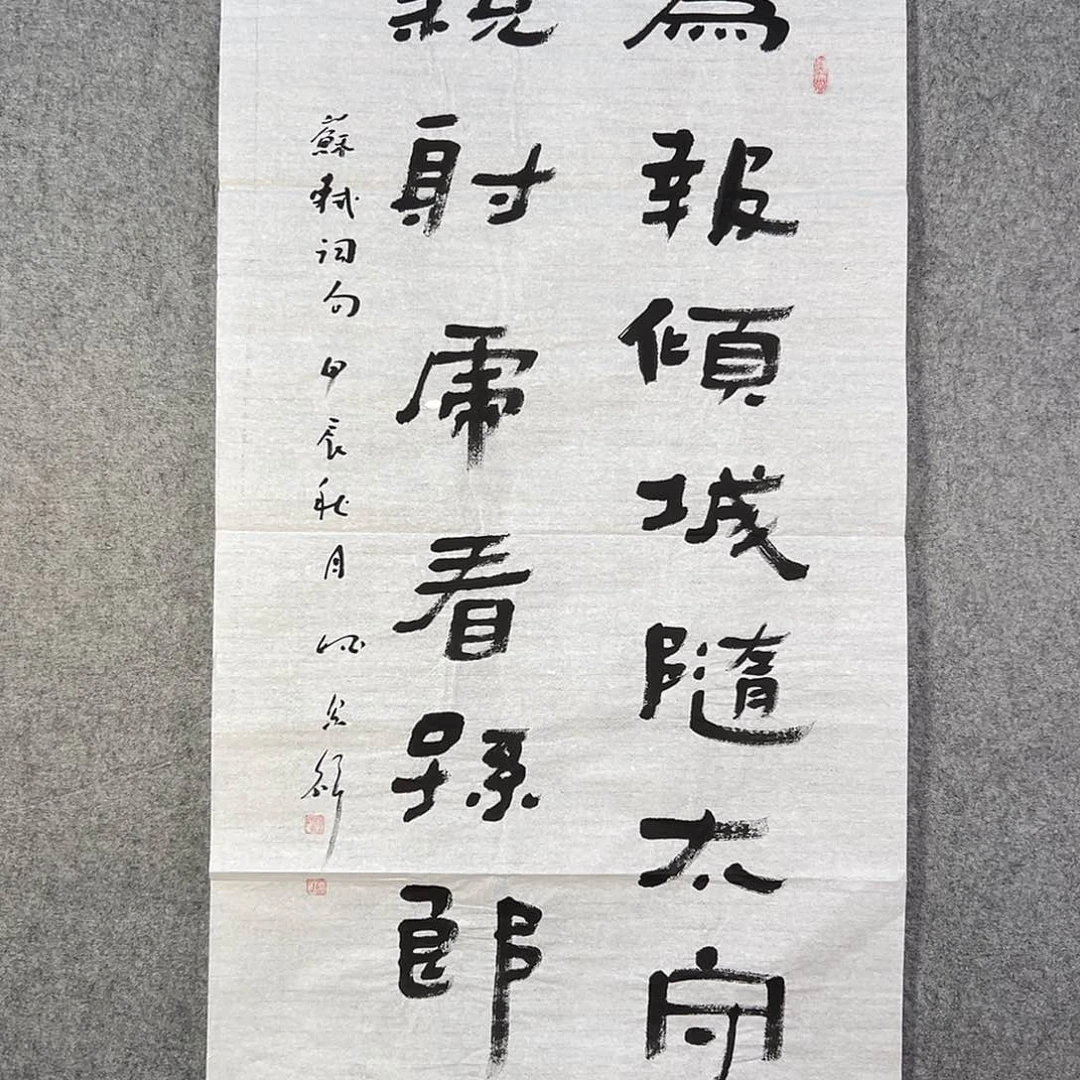 為報傾城隨太守
親射虎看孫郎
蘇軾詞句 甲辰秋月